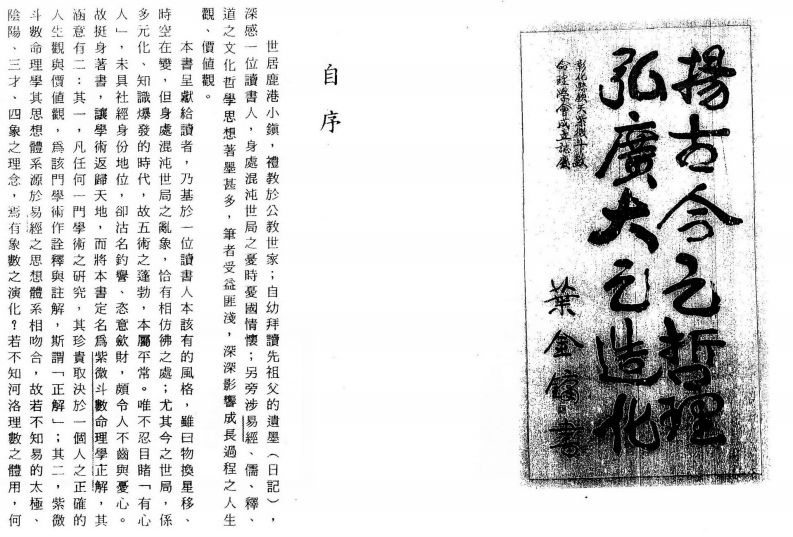 揚古今之哲理
弘廣大之造化
彰化縣欽天紫微斗數
命理學會成立誌慶
葉金鐘書
自序
世居鹿港小鎮，禮教於公教世家；自幼拜讀先祖父的遺墨（日記），
深感一位讀書人，身處混沌世局之憂時憂國情懷；另旁涉易經、儒、釋、
道之文化哲學思想著墨甚多，筆者受益匪淺，深深影響成長過程之人生
觀、價值觀。
本書呈獻給讀者，乃基於一位讀書人本該有的風格，雖曰物換星移、
時空在變，但身處混沌世局之亂象，恰有相仿彿之處；尤其今之世局，係
多元化、知識爆發的時代，故五術之蓬勃，本屬平常。唯不忍目睹「有心
人」，未具社經身份地位，卻沽名釣譽、恣意歛財，頗令人不齒與憂心。
故挺身著書，讓學術返歸天地，而將本書定名為紫微斗數命理學正解，其
涵意有二：其一，凡任何一門學術之研究，其珍貴取決於一個人之正確的
人生觀與價值觀，爲該門學術作詮釋與註解，斯謂「正解」；其二，紫微
斗數命理學其思想體系源於易經之思想體系相吻合，故若不知易的太極、
陰陽、三才、四象之理念，焉有象數之演化？若不知河洛理數之體用，何